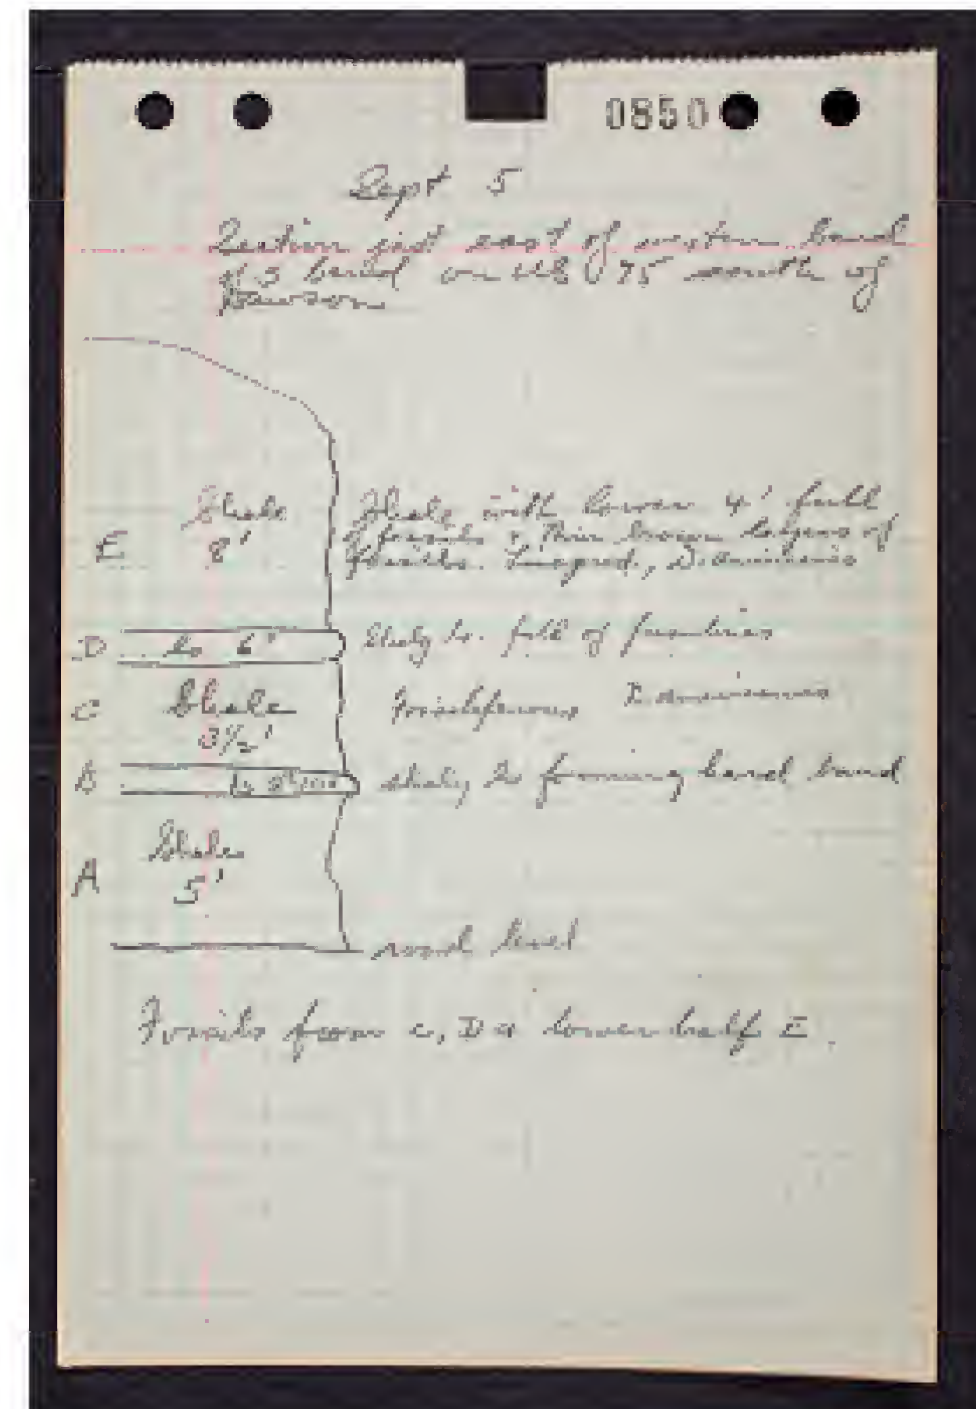 0850
Sept 5
Section just east of western bend
of S bend on US 75 south of
Dawson
E Shale 8' Shale with lower 4' full
fossils & thin brown layers of
fossils.
D ls 6" Shaly ls. full of
C Shale 3½' Fossiliferous
B ls shaly ls forming hard band
A Shale 5'
road level
Fossils from C, D & lower half E.